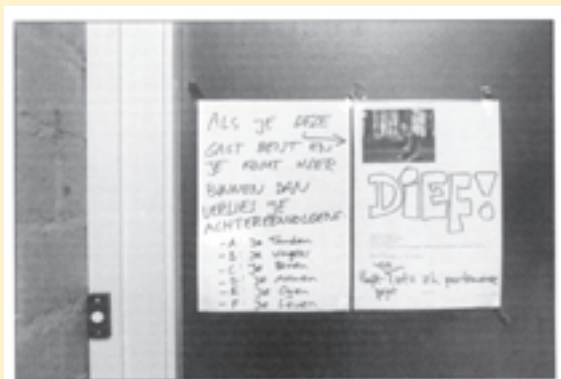 ALS JE DEZE
GAST BENT EN
JE KOMT HIER
BINNEN DAN
VERLIES JE
ACHTEREENVOLGENS
-A: Je Tanden
-B: Je Vingers
-C: Je Benen
-D: Je Armen
-E: Je Ogen
-F: Je Leven
DIEF!